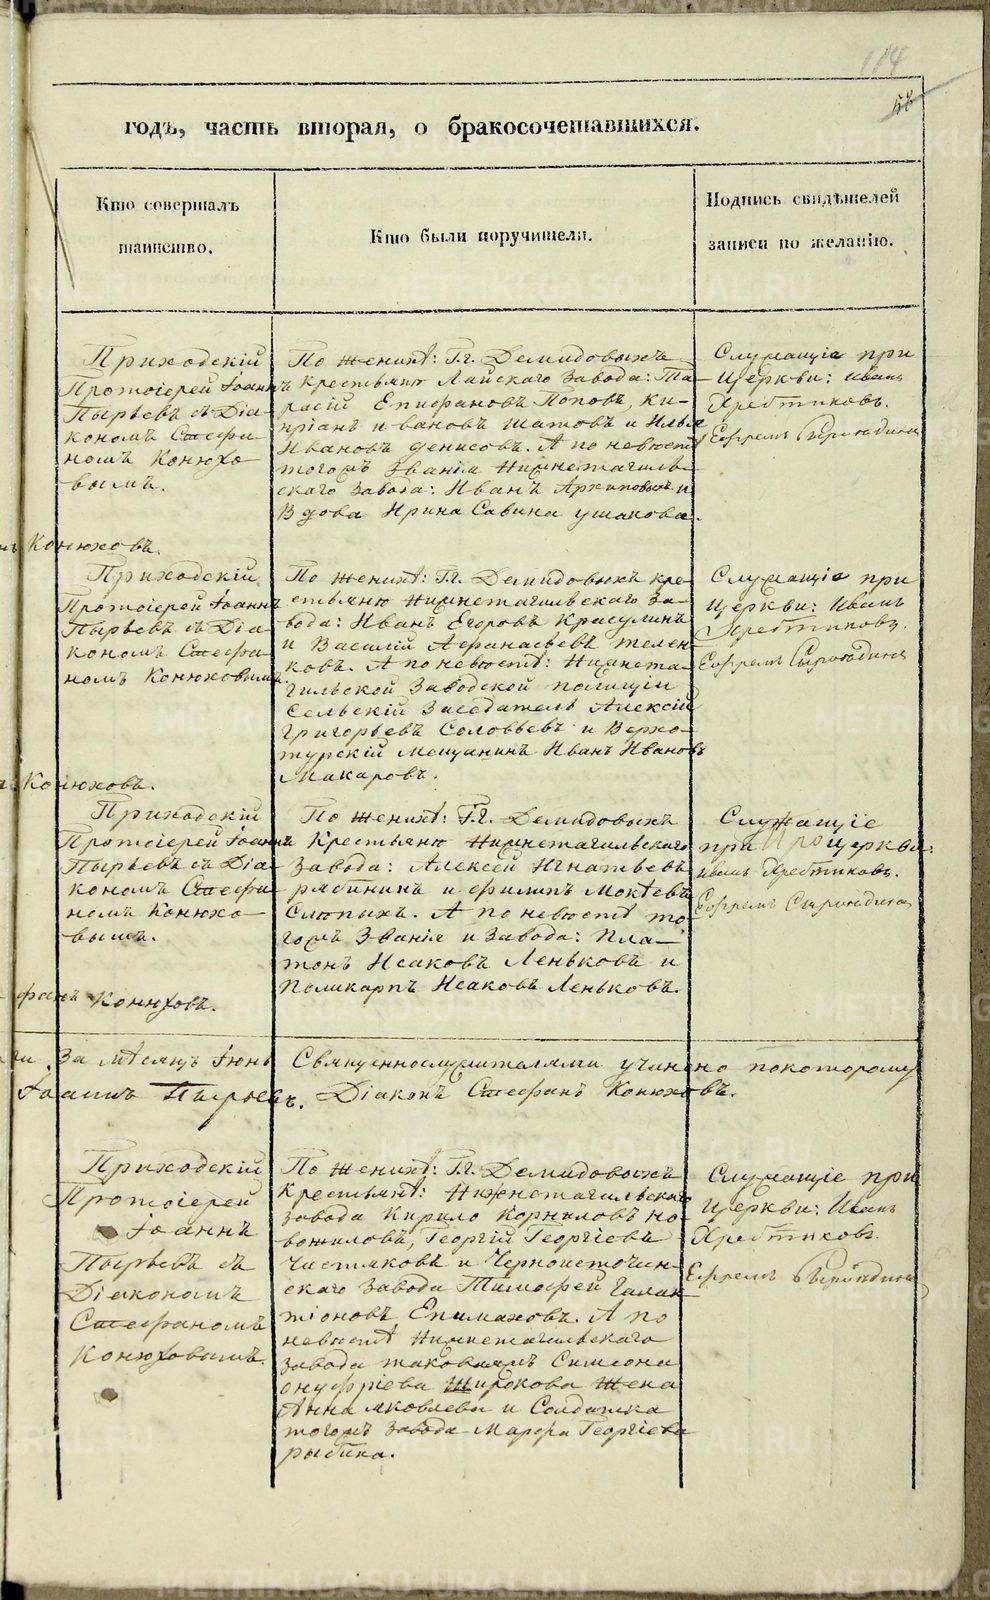 114
годъ, часть вторая, о бракосочетавшихся.
Кто совершалъ
таинство.
Кто были поручители.
Подпись свидѣтелей
записи по желанію.
Приходскій
Протоіерей Іоаннъ
Пырьевъ съ Діа-
кономъ Стефа-
номъ Конюхо-
вымъ.
По женихѣ: Г.г. Демидовыхъ
крестьяне Лайскаго завода: Та-
расій Епифановъ Поповъ, Ки-
пріанъ Ивановъ Шатовъ и Илья
Ивановъ Денисовъ. А по невѣстѣ
тогожъ званія Нижнетагиль-
скаго завода: Иванъ Архиповыхъ и
Вдова Ирина Савина Ушакова.
Служащіе при
Церкви: Иванъ
Хребтиковъ.
Ефремъ
Конюховъ.
Приходскій
Протоіерей Іоаннъ
Пырьевъ съ Діа-
кономъ Стефа-
номъ Конюховымъ.
По женихѣ: Г.г. Демидовыхъ кре-
стьяне Нижнетагильскаго за-
вода: Иванъ Егоровъ Красулинъ
и Василій Афанасьевъ Телен-
ковъ. А по невѣстѣ: Нижнета-
гильской Заводской полиціи
Сельскій Заседатель Алексѣй
Григорьевъ Соловьевъ и Верхо-
турскій Мещанинъ Иванъ Ивановъ
Макаровъ.
Служащіе при
Церкви: Иванъ
Хребтиковъ.
Ефремъ
Конюховъ.
Приходскій
Протоіерей Іоаннъ
Пырьевъ съ Діа-
кономъ Стефа-
номъ Конюхо-
вымъ.
По женихѣ: Г.г. Демидовыхъ
Крестьяне Нижнетагильскаго
завода: Алексей Игнатьевъ
Рябининъ и Филипъ Мокѣевъ
Слѣпыхъ. А по невѣстѣ то-
гожъ Званія и Завода: Пла-
тонъ Исаковъ Леньковъ и
Поликарпъ Исаковъ Леньковъ.
Служащіе
при церкви:
Иванъ Хребтиковъ.
Ефремъ
фанъ Конюховъ.
За мѣсяцъ Іюнь Священнослужителями учинено покоторому
Іоаннъ Пырьевъ. Діаконъ Стефанъ Конюховъ.
Приходскій
Протоіерей
Іоаннъ
Пырьевъ съ
Діакономъ
Стефаномъ
Конюховымъ.
По женихѣ: Г.г. Демидовыхъ
Крестьяне: Нижнетагильскаго
завода Кирило Корниловъ Но-
вожиловъ, Георгій Георгіевъ
Чистяковъ и Черноисточин-
скаго завода Тимофей Галак-
тіоновъ Епимаховъ. А по
невѣстѣ Нижнетагильскаго
завода таковыхъ Симеона
Онуфріева Широкова Жена
Анна Яковлева и Солдатка
тогожъ завода Марфа Георгіева
Рыбина.
Служащіе при
Церкви: Иванъ
Хребтиковъ.
Ефремъ
METRIKI.GASO-URAL.RU